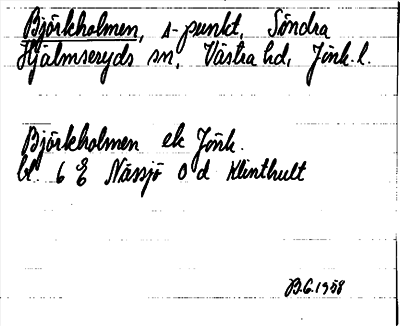 Björkholmen, s-punkt, Södra
Hjälmseryds sn, Västra hd, Jönk. l.
Björkholmen ek Jönk.
bl. 6 E Nässjö 0 d Klinthult
B.G. 1958